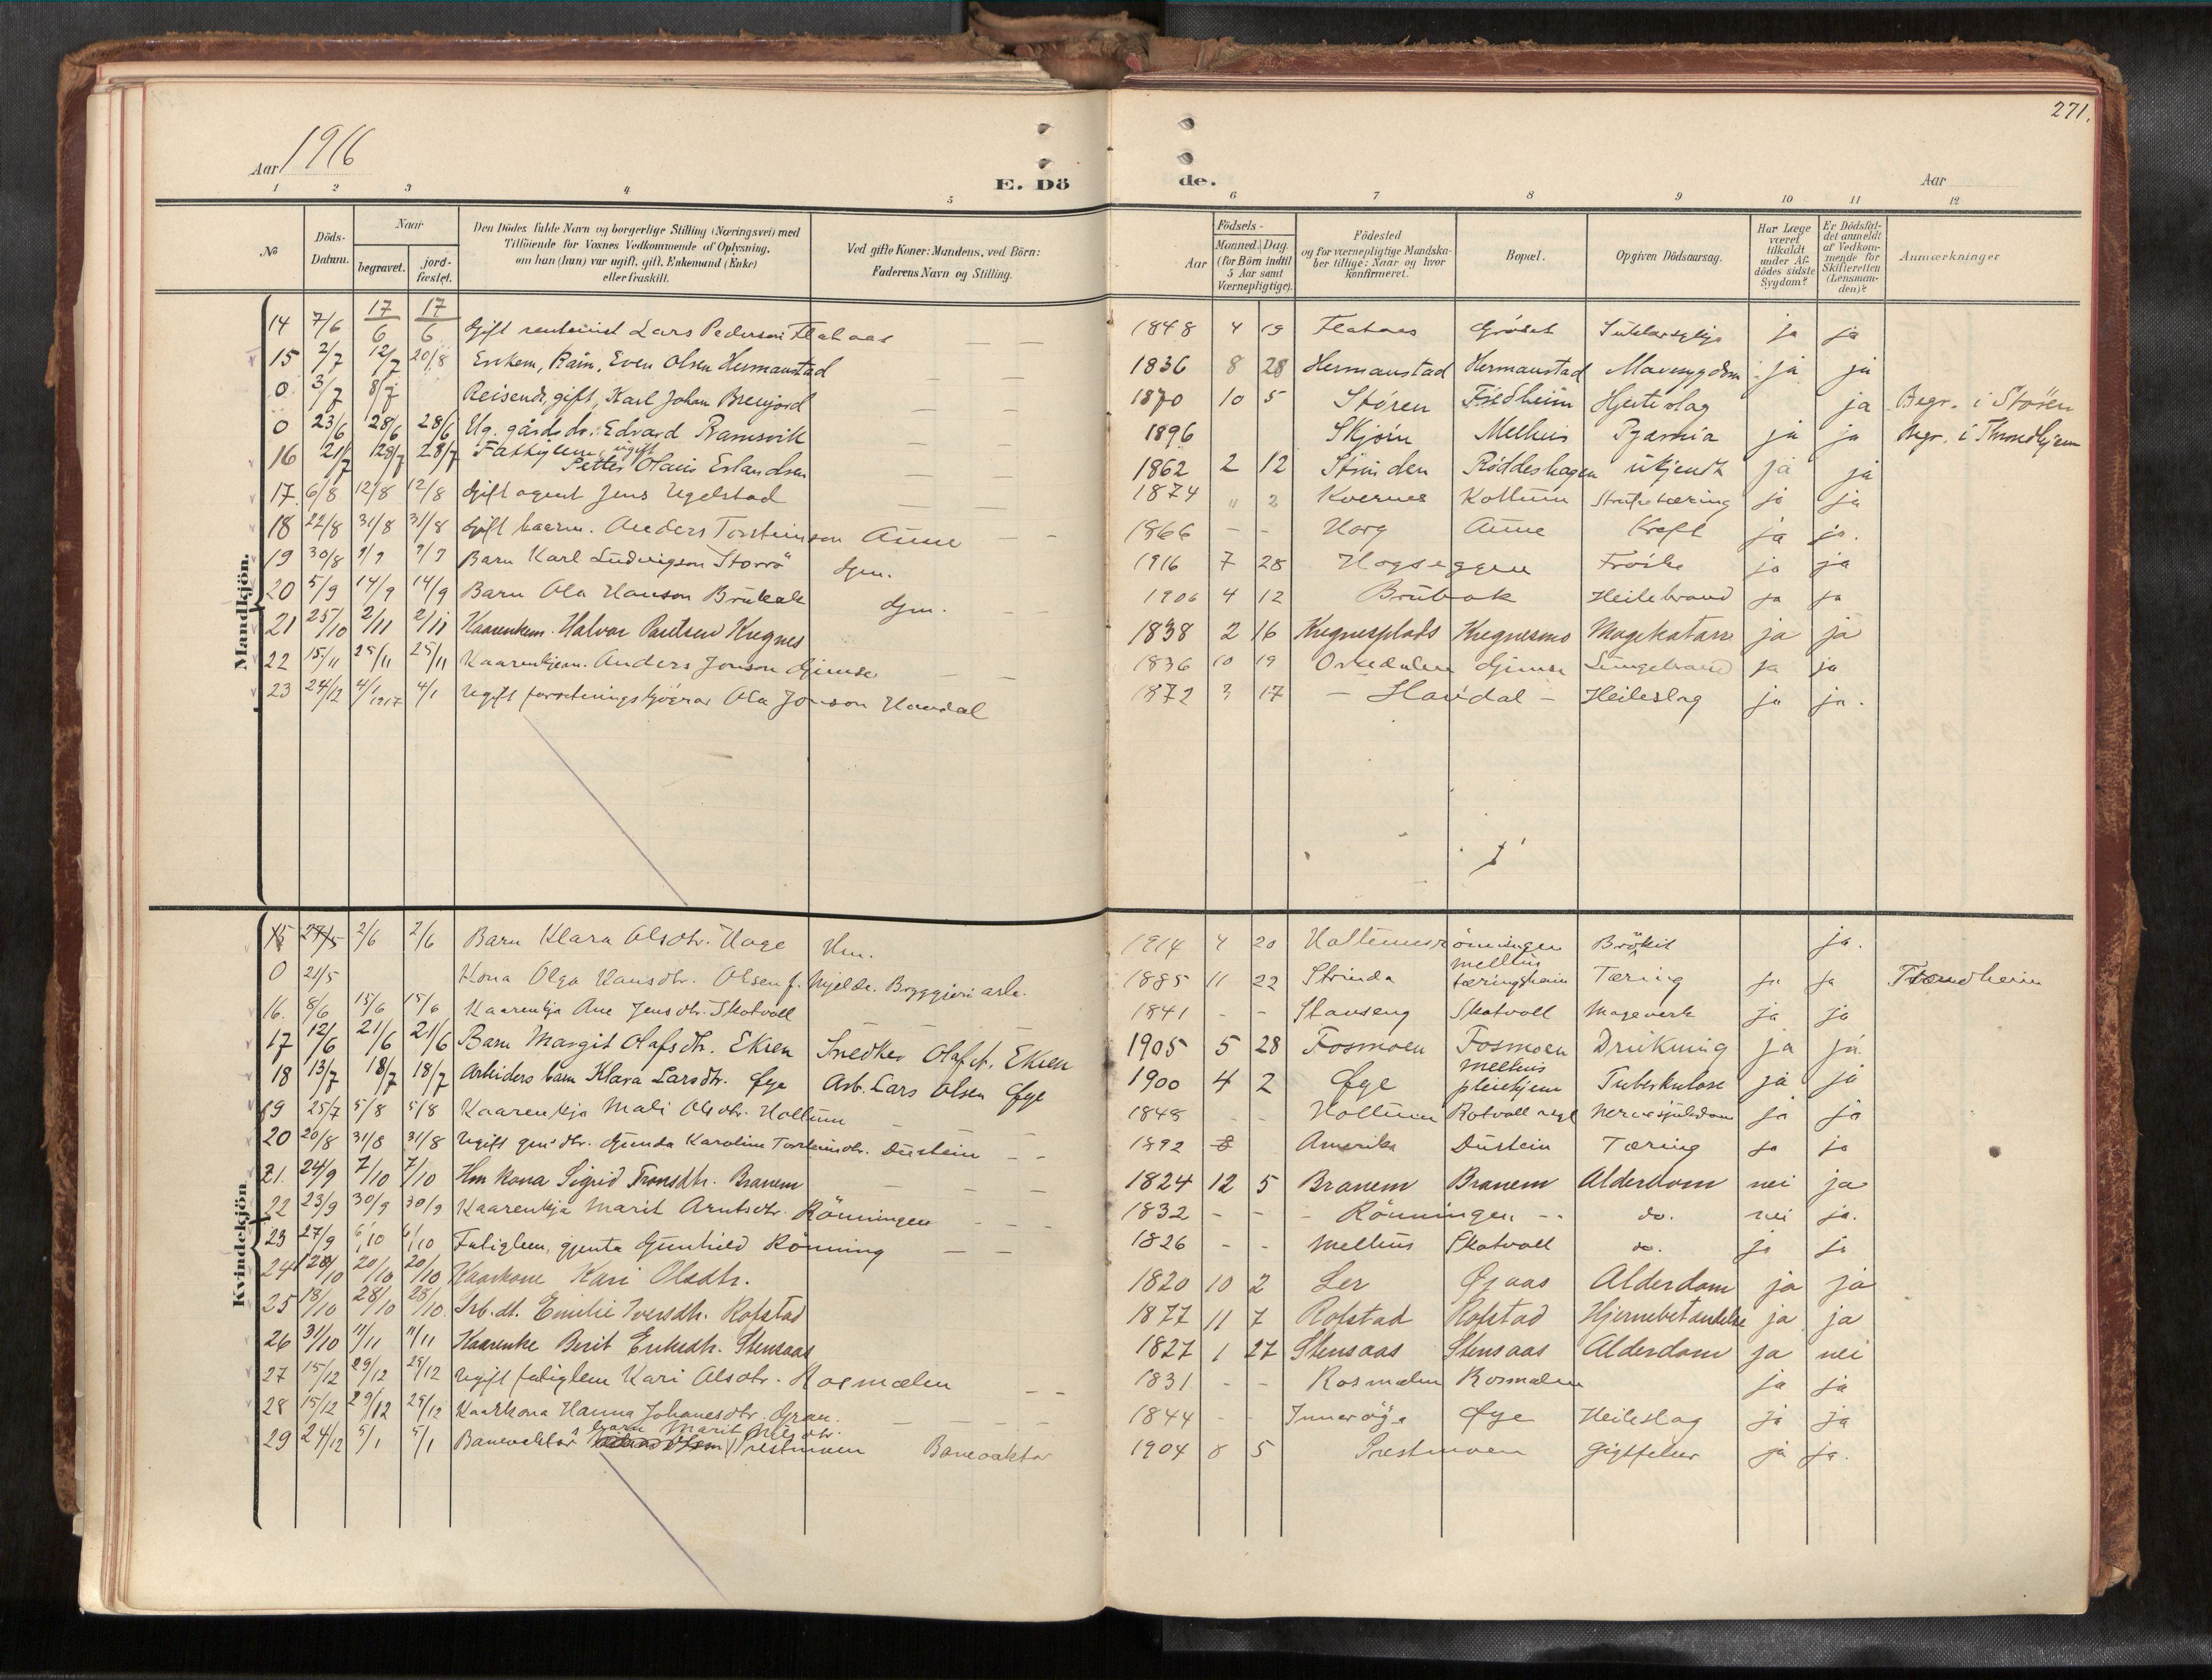 271.
Aar 1916
E. Dö de.
Aar
1 2 3 4 5 6 7 8 9 10 11 12
No
Döds-Datum.
Naar
begravet.
jordfæstet.
Den Dödes fulde Navn og borgerlige Stilling (Næringsvei) med Tilföiende for Voxnes Vedkommende af Oplysning, om han (hun) var ugift, gift, Enkemand (Enke) eller fraskilt.
Ved gifte Koner: Mandens, ved Börn: Faderens Navn og Stilling.
Födsels-
Aar
Maaned. Dag.
(for Börn indtil 5 Aar samt Værnepligtige).
Födested
og for værnepligtige Mandskaber tillige: Naar og hvor konfirmeret.
Bopæl.
Opgiven Dödsaarsag.
Har Læge været tilkaldt under Afdödes sidste Sygdom?
Er Dödsfaldet anmeldt af Vedkommende for Skifteretten (Lensmanden)?
Anmærkninger
Mandkjön.
14 7/6 17/6 17/6 Gift Lars Pederson Flataas — — 1848 4 19 Flataas Gröset ja ja
15 2/7 12/7 20/8 Enkem, Kårm, Even Olsen Hermanstad — — 1836 8 28 Hermanstad Hermanstad Mavesygdom ja ja
0 3/7 8/7 Reisende, gift, Karl Johan — — 1870 10 5 Støren Fredheim Hjerteslag ja Begr. i Støren
0 23/6 28/6 28/6 Ug. gårdsdr. Edvard Ramsvik — — 1896 Skjørn Melhus Pyæmia ja ja Begr. i Throndhjem
16 21/7 28/7 28/7 Fattiglem, ugift Petter Olaus Erlandsen — — 1862 2 12 Strinden Røddeshagen ukjendt ja ja
17 6/8 12/8 12/8 Gift agent Jens Ugelstad — — 1874 11 2 Kvernes Kollum ja ja
18 22/8 31/8 31/8 Gift kaarm. Anders Torsteinson Aune — — 1866 – – Horg Aune Kreft ja ja.
19 30/8 9/9 9/9 Barn Karl Ludvigson Storrö Gm. 1916 7 28 Hogseggen ja ja
20 5/9 14/9 14/9 Barn Ola Hanson Brubak Gm. — — 1906 4 12 Brubak Heilebrand ja ja
21 25/10 2/11 2/11 Kaarenkem. Halvor Paulsen Kregnes 1838 2 16 Kregnesplads Kregnesmo Magekatarr ja ja
22 15/11 25/11 25/11 Kaarenkjem. Anders Jonson Gimse — — 1836 10 19 Orkedalen Gimse Lungebrand ja ja
23 24/12 4/1 1917 4/1 Ugift forretningskjörar Ola Jonson Havdal 1872 3 17 – Havdal – Heileslag ja ja.
Kvindekjön.
15 27/5 2/6 2/6 Barn Klara Olsdtr. Hage Hm. 1914 4 20 Holtumsrönningen ja.
0 21/5 Kona Olga Hansdtr. Olsen f. Mjelde. Bryggjeri arb. 1885 11 22 Strinda Melhus tæringsheim Tæring ja ja Trondheim
16. 8/6 15/6 15/6 Kaarenkja Ane Jensdtr. Skotvoll — — — 1841 - - Skotvoll ja ja
17 12/6 21/6 21/6 Barn Margit Olafsdtr. Ekren Snedker Olaf A. Ekren 1905 5 28 Fosmoen Fosmoen Drukning ja ja
18 13/7 18/7 18/7 Arbeiders barn Klara Larsdtr. Øye Arb. Lars Olsen Øye 1900 4 2 Øye Melhus pleiehjem Tuberkulose ja ja
19 25/7 5/8 5/8 Kaarenkja Mali Olsdtr. Hollum — — 1848 - - Hollum Rotvoll asyl Nervesjukdom ja ja
20 20/8 31/8 31/8 Ugift gm's dtr. Gunda Karoline Torsteinsdtr. Dustein — — 1892 8 Amerika Dustein Tæring ja ja
21. 24/9 7/10 7/10 Hm kona Sigrid Tronsdtr. Branem — — — 1824 12 5 Branem Branem Alderdom nei ja
22 23/9 30/9 30/9 Kaarenkja Marit Arntsdtr. Rönningen — — — 1832 - - - Rönningen -- do. nei ja.
23 27/9 6/10 6/10 Fatiglem, gjenta Gunhild Rönning — — 1826 - - Melhus Skotvoll do. ja ja
24 12/10 20/10 20/10 Kaarkone Kari Olsdtr. 1820 10 2 Ler Øyaas Alderdom ja ja
25 18/10 28/10 28/10 Arb. dt. Emilie Iversdtr. Rofstad 1877 11 7 Rofstad Rofstad Hjernebetændelse ja ja
26 31/10 11/11 11/11 Kaarenke Berit Eriksdtr. Stensaas 1827 1 27 Stensaas Stensaas Alderdom ja nei
27 15/12 29/12 29/12 Ugift fatiglem Kari Olsdtr. Rosmælen — — 1831 - - Rosmælen Rosmælen ja ja
28 15/12 29/12 29/12 Kaarkona Hanna Johanesdtr. Gran. — — — — 1844 - - Inneröya Øye Heileslag ja ja
29 24/12 5/1 5/1 Banevaktar's barn Marit Nilsdtr. Prestmoen Banevaktar 1904 8 5 Prestmoen Giktfeber ja ja.